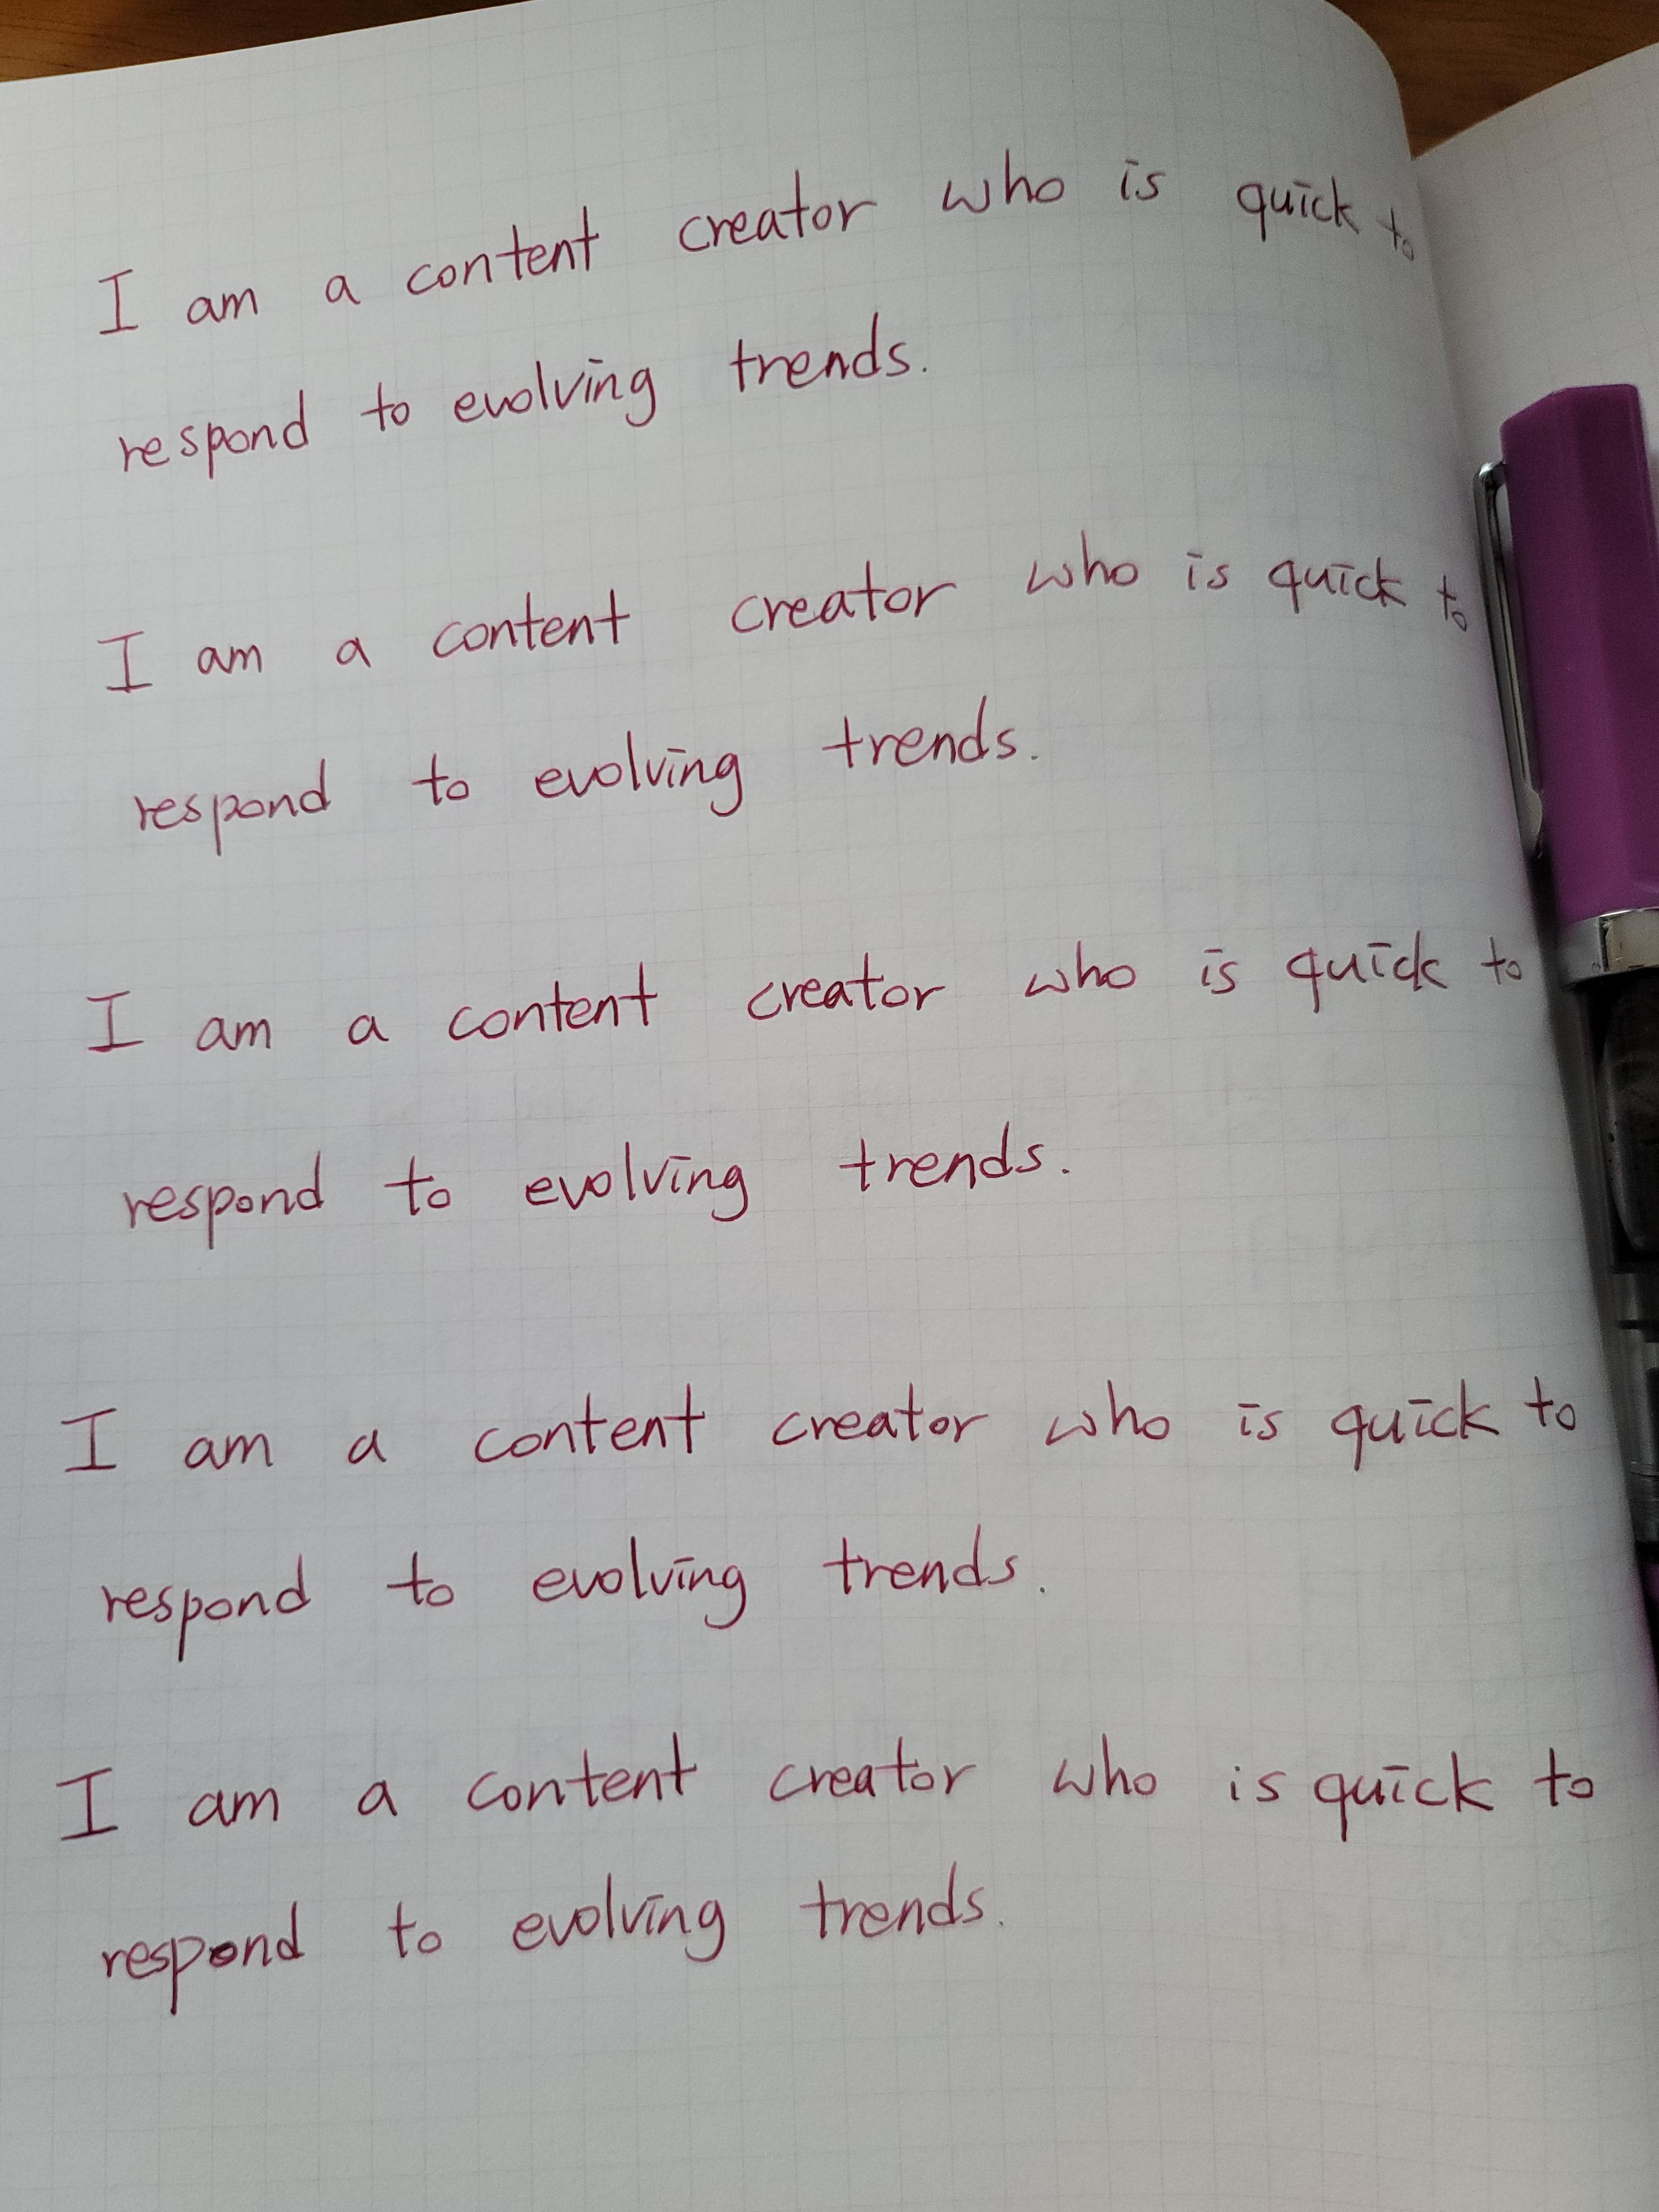 I am a content creator who is quick to
respond to evolving trends.
I am a content creator who is quick to
respond to evolving trends.
I am a content creator who is quick to
respond to evolving trends.
I am a content creator who is quick to
respond to evolving trends.
I am a content creator who is quick to
respond to evolving trends.